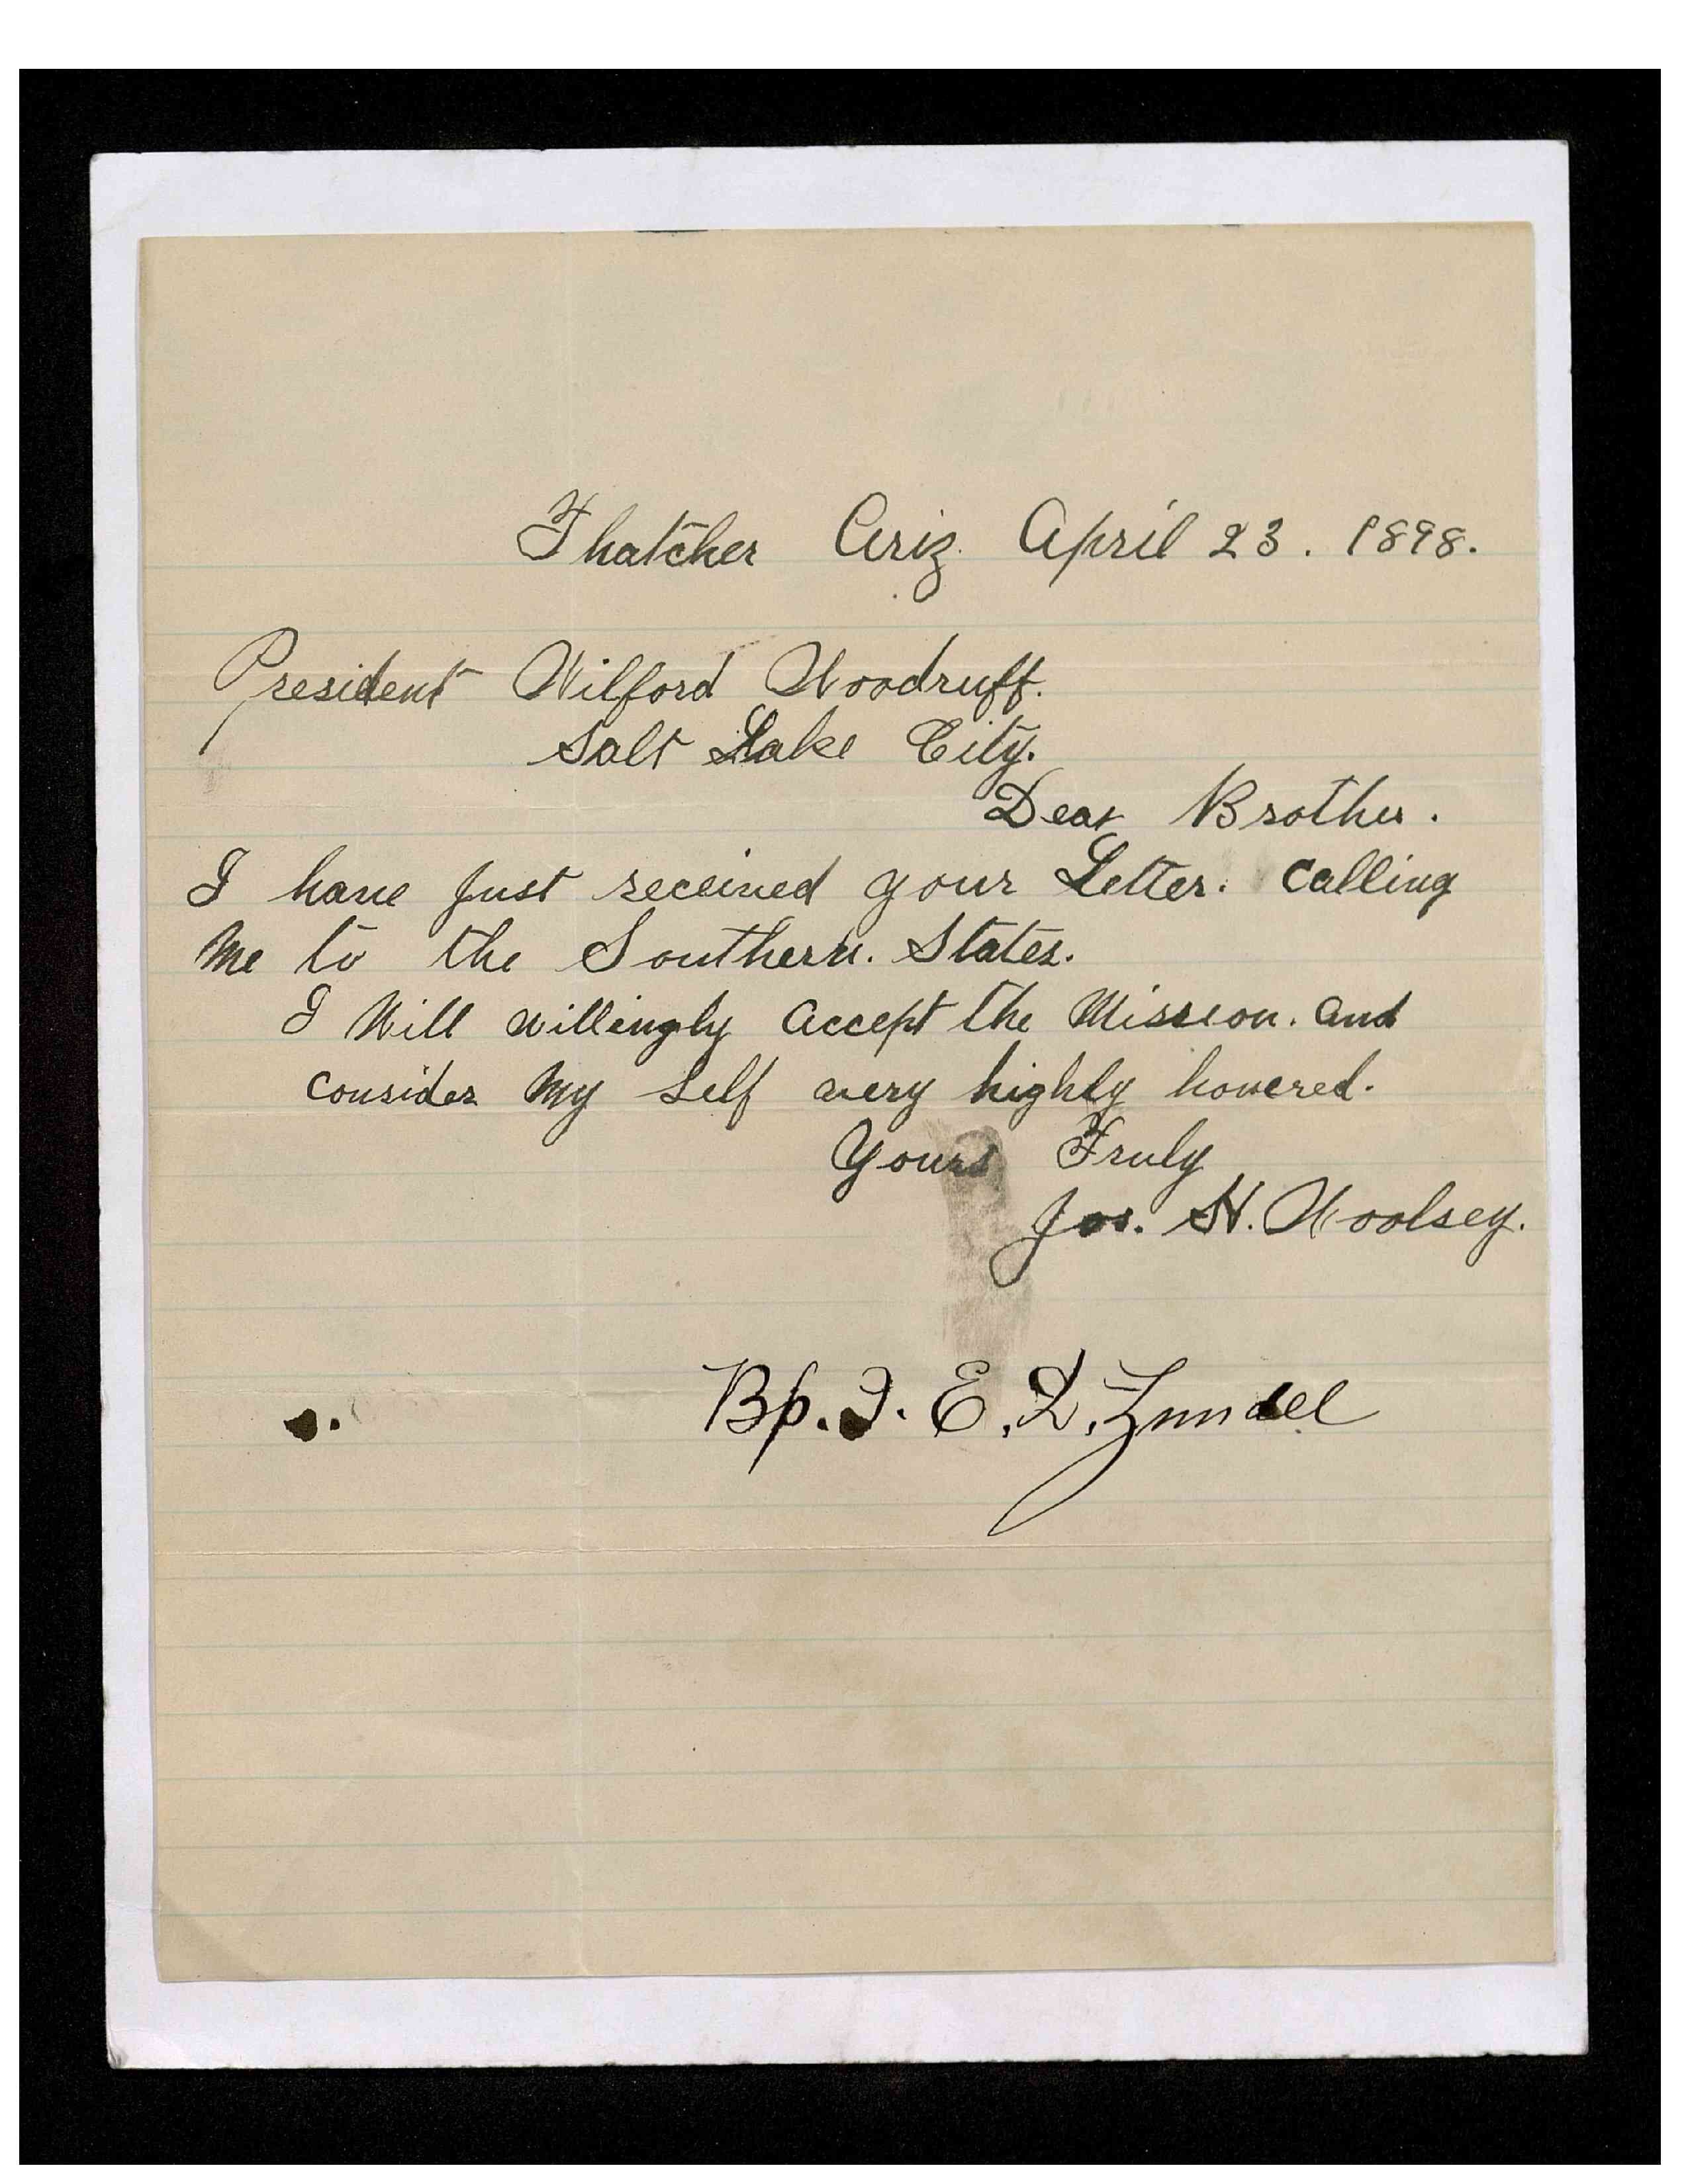 Thatcher Ariz. April 23. 1898.
President Wilford Woodruff.
Salt Lake City.
Dear Brother.
I have just received your Letter. Calling
Me to the Southern. States.
I Will willingly accept the Mission. and
consider My Self very highly honered.
Yours Truly
Jos. H. Woolsey.
Bp. I. E. D. Zundel